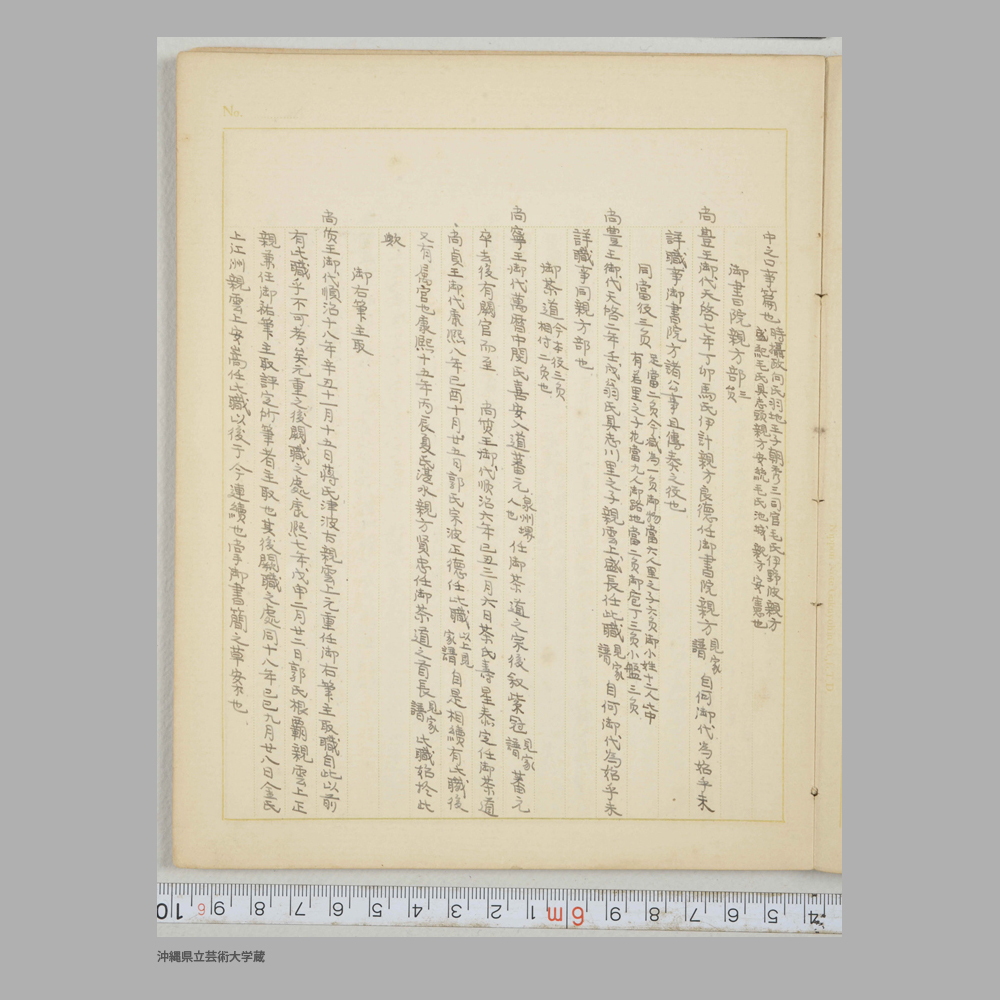 中之口事篇也 時攝政向氏羽地王子朝秀三司官毛氏伊野波親方
盛紀毛氏具志頭親方安統毛氏池城親方安憲也
御書院親方部 三員
尚豊王御代天啓七年丁卯馬氏伊計親方良徳任御書院親方 見家譜 自何御代為始乎未
詳職事御書院方諸公事且傳奏之役也
同當役三員 足當二員今減為一員御物當六人里之子六員御小姓十六人此中
有若里之子花當九人御路地當二員御庖丁三員小盤三員
尚豊王御代天啓二年壬戌翁氏具志川里之子親雲上盛長任此職 見家譜 自何御代為始乎未
詳職事同親方部也
御茶道 今本役三員相付二員也
尚寧王御代萬暦中閔氏喜安入道蕃元 泉州堺人也 任御茶道之宗後叙紫冠 見家譜 蕃元
卒去後有闕官而至 尚質王御代順治六年己丑三月六日茶氏壽星泰定任御茶道
尚貞王御代康熙八年己酉十月廿五日郭氏宗波正徳任此職 以上見家譜 自是相續有此職後
又有屬官也康熙十五年丙辰夏氏湊水親方賢忠任御茶道之首長 見家譜 此職始於此
歟
御右筆主取
尚質王御代順治十八年辛丑十一月十五日蔣氏津波古親雲上元重任御右筆主取職自此以前
有此職乎不可考矣元重之後闕職之處康熙七年戊申二月廿二日郭氏根覇親雲上正
親兼任御祐筆主取評定所筆者主取也其後闕職之處同十八年己巳九月廿八日金氏
上江洲親雲上安嵩任此職以後于今連續也掌御書簡之草案也
No.
10 6 9 8 7 6 5 4 3 2 1 6m 9 8 7 6 5 4
沖縄県立芸術大学蔵